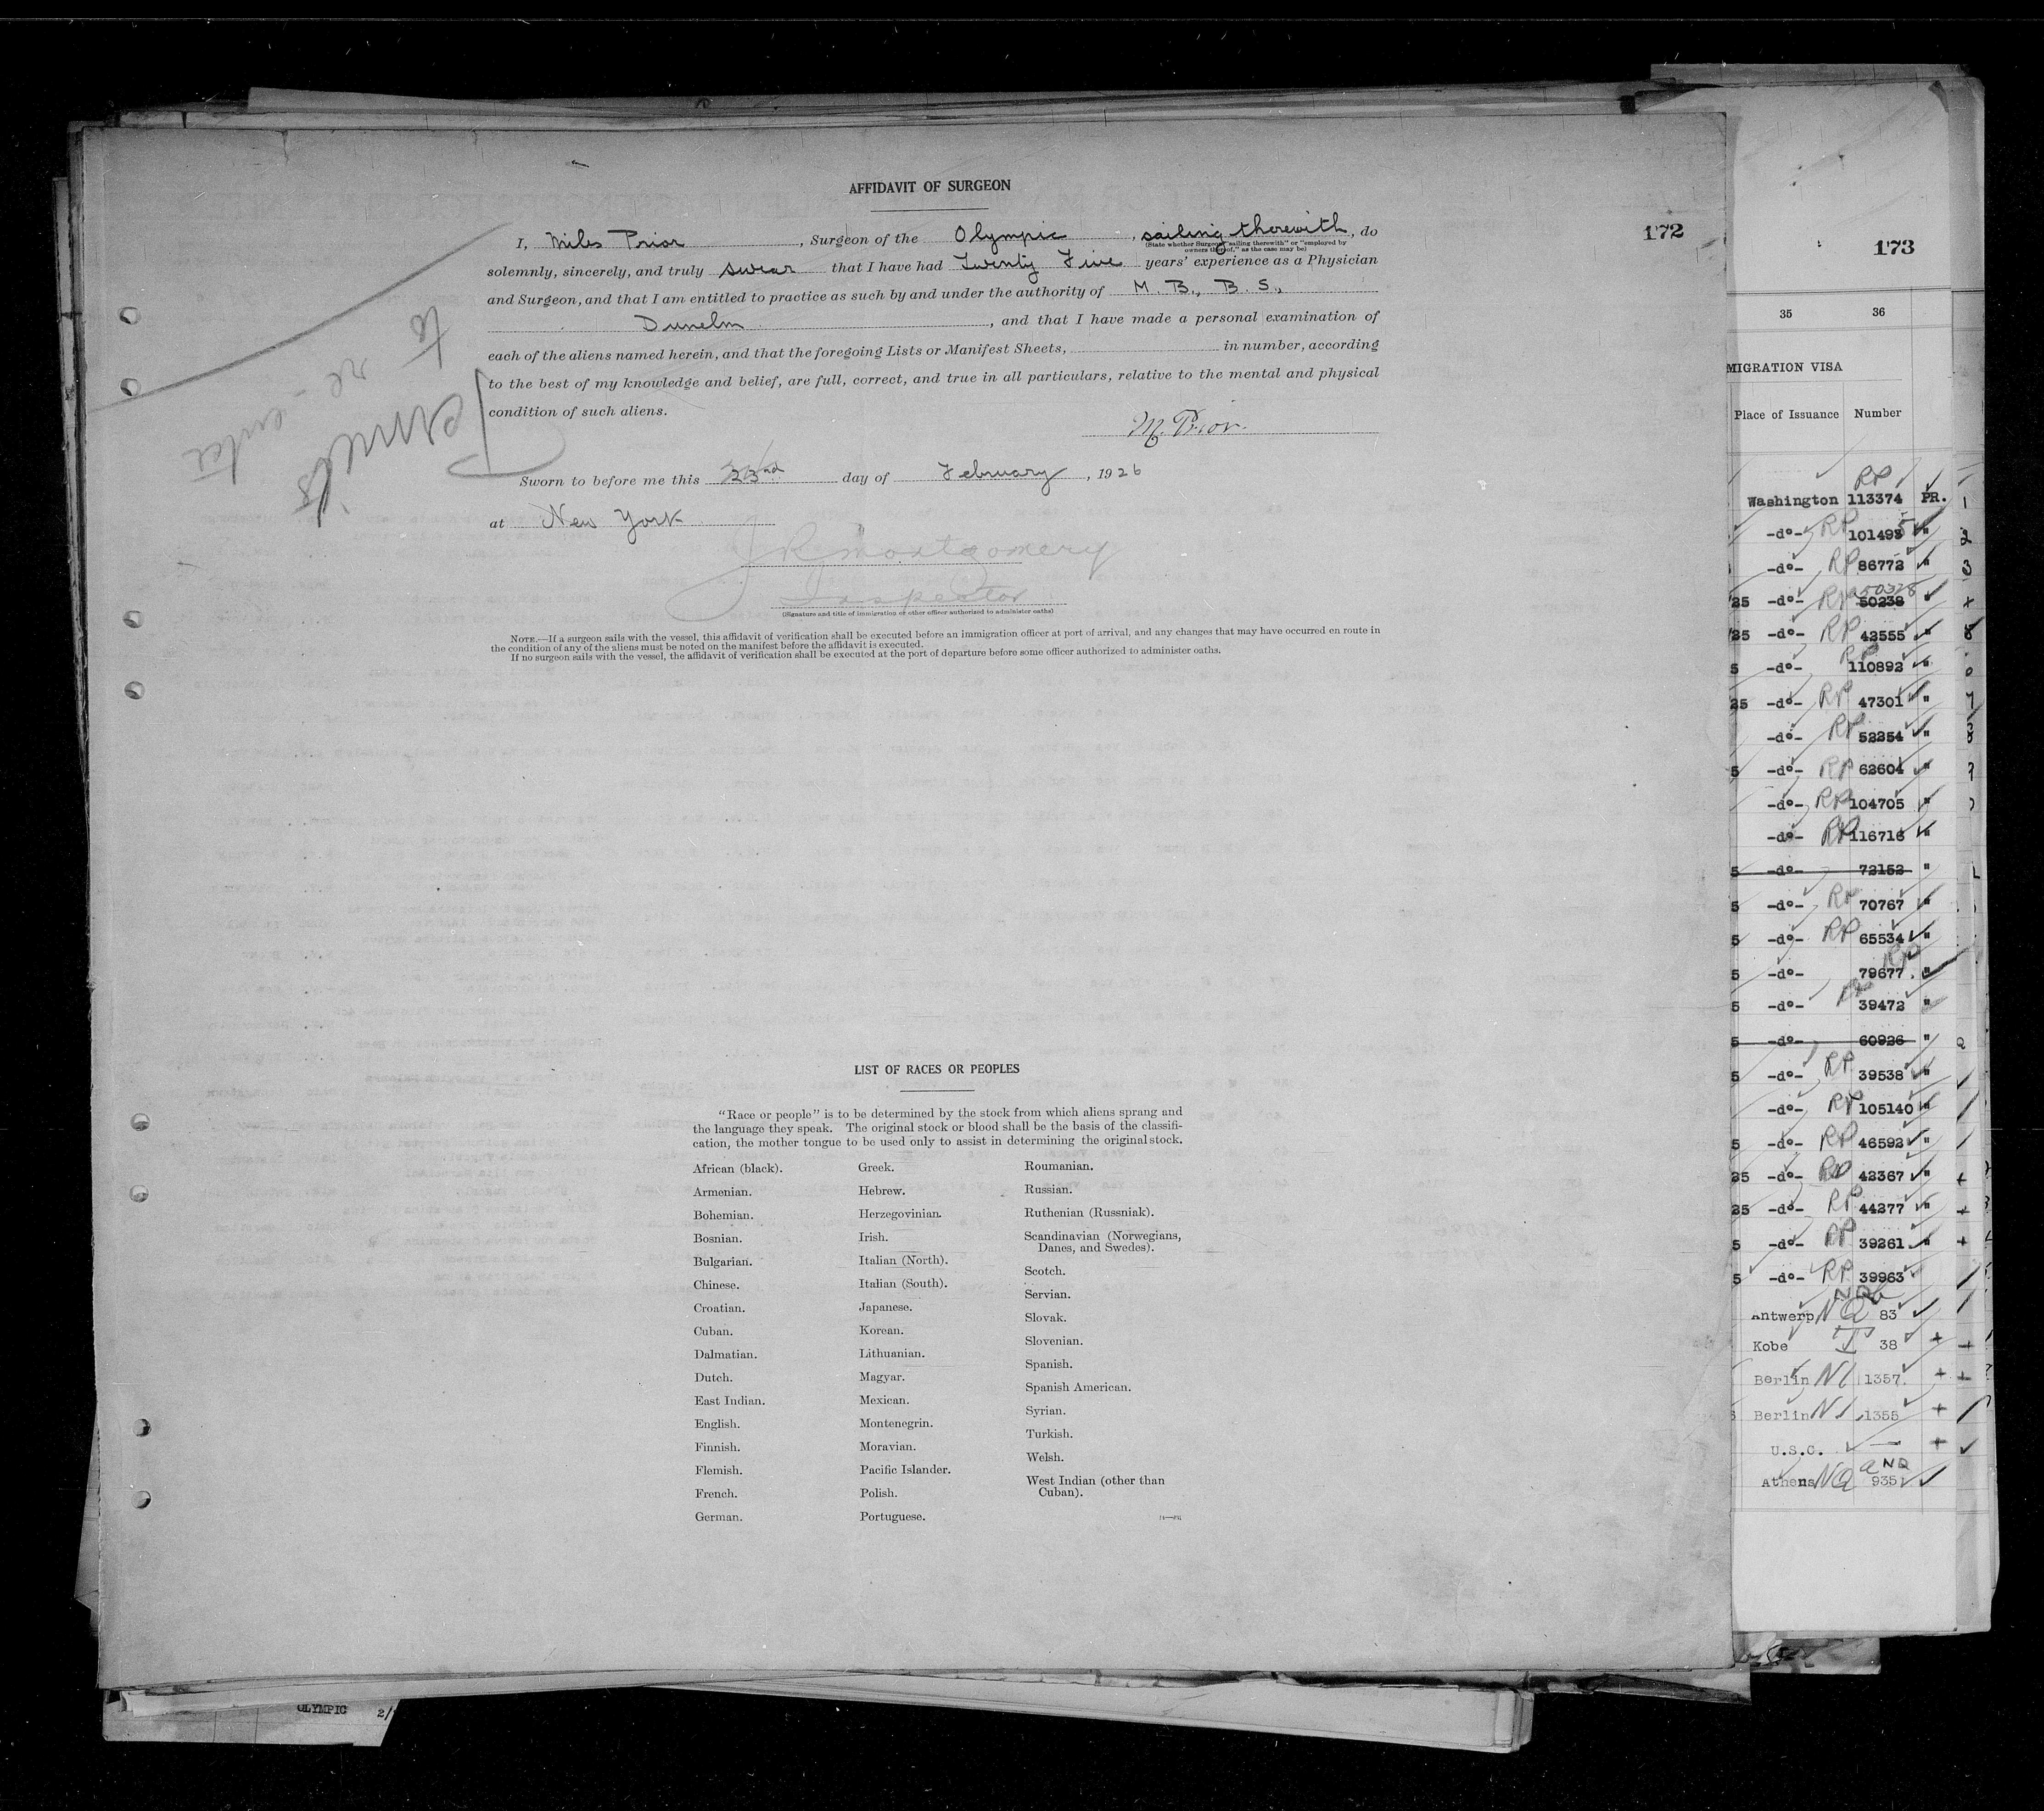 AFFIDAVIT OF SURGEON
172
I, Miles Prior, Surgeon of the Olympic, sailing therewith, do
(State whether Surgeon "sailing therewith" or "employed by
owners thereof," as the case may be)
solemnly, sincerely, and truly swear that I have had Twenty Five years' experience as a Physician
and Surgeon, and that I am entitled to practice as such by and under the authority of M. B., B. S.,
Dunelm, and that I have made a personal examination of
each of the aliens named herein, and that the foregoing Lists or Manifest Sheets, in number, according
to the best of my knowledge and belief, are full, correct, and true in all particulars, relative to the mental and physical
condition of such aliens.
M. Prior.
Sworn to before me this 23rd day of February, 1926
at New York
JRMontgomery
Inspector
(Signature and title of immigration or other officer authorized to administer oaths)
NOTE.—If a surgeon sails with the vessel, this affidavit of verification shall be executed before an immigration officer at port of arrival, and any changes that may have occurred en route in
the condition of any of the aliens must be noted on the manifest before the affidavit is executed.
If no surgeon sails with the vessel, the affidavit of verification shall be executed at the port of departure before some officer authorized to administer oaths.
Permits
to re-enter
LIST OF RACES OR PEOPLES
"Race or people" is to be determined by the stock from which aliens sprang and
the language they speak. The original stock or blood shall be the basis of the classifi-
cation, the mother tongue to be used only to assist in determining the original stock.
African (black).
Armenian.
Bohemian.
Bosnian.
Bulgarian.
Chinese.
Croatian.
Cuban.
Dalmatian.
Dutch.
East Indian.
English.
Finnish.
Flemish.
French.
German.
Greek.
Hebrew.
Herzegovinian.
Irish.
Italian (North).
Italian (South).
Japanese.
Korean.
Lithuanian.
Magyar.
Mexican.
Montenegrin.
Moravian.
Pacific Islander.
Polish.
Portuguese.
Roumanian.
Russian.
Ruthenian (Russniak).
Scandinavian (Norwegians,
Danes, and Swedes).
Scotch.
Servian.
Slovak.
Slovenian.
Spanish.
Spanish American.
Syrian.
Turkish.
Welsh.
West Indian (other than
Cuban).
173
35 36
MIGRATION VISA
Place of Issuance Number
Washington RP 113374 PR. 1
-do- RP 101495 " 2
-do- RP 86772 " 3
25 -do- RP 50238 50328
25 -do- RP 42555 "
5 -do- RP 110892 "
25 -do- RP 47301 " 7
-do- RP 52254 " 8
5 -do- RP 62604 "
-do- RP 104705 "
-do- RP 116716 "
5 -do- 72152 "
5 -do- RP 70767 "
5 -do- RP 65534 "
5 -do- RP 79677 "
5 -do- RP 39472 "
5 -do- 60926 "
5 -do- RP 39538 "
-do- RP 105140 "
5 -do- RP 46592 "
25 -do- RP 42367 "
25 -do- RP 44277 "
5 -do- RP 39261 "
5 -do- RP 39963
Antwerp NQ 83
Kobe 38
Berlin 1357
Berlin 1355
U.S.C. —
Athens NQ 935
OLYMPIC 2/